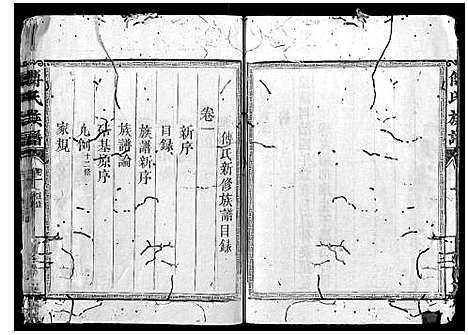 傅氏族譜
傅氏新修族譜目錄
卷一
新序
目錄
族譜新序
族譜論
基原序
凡例十二條
家規
氏族譜